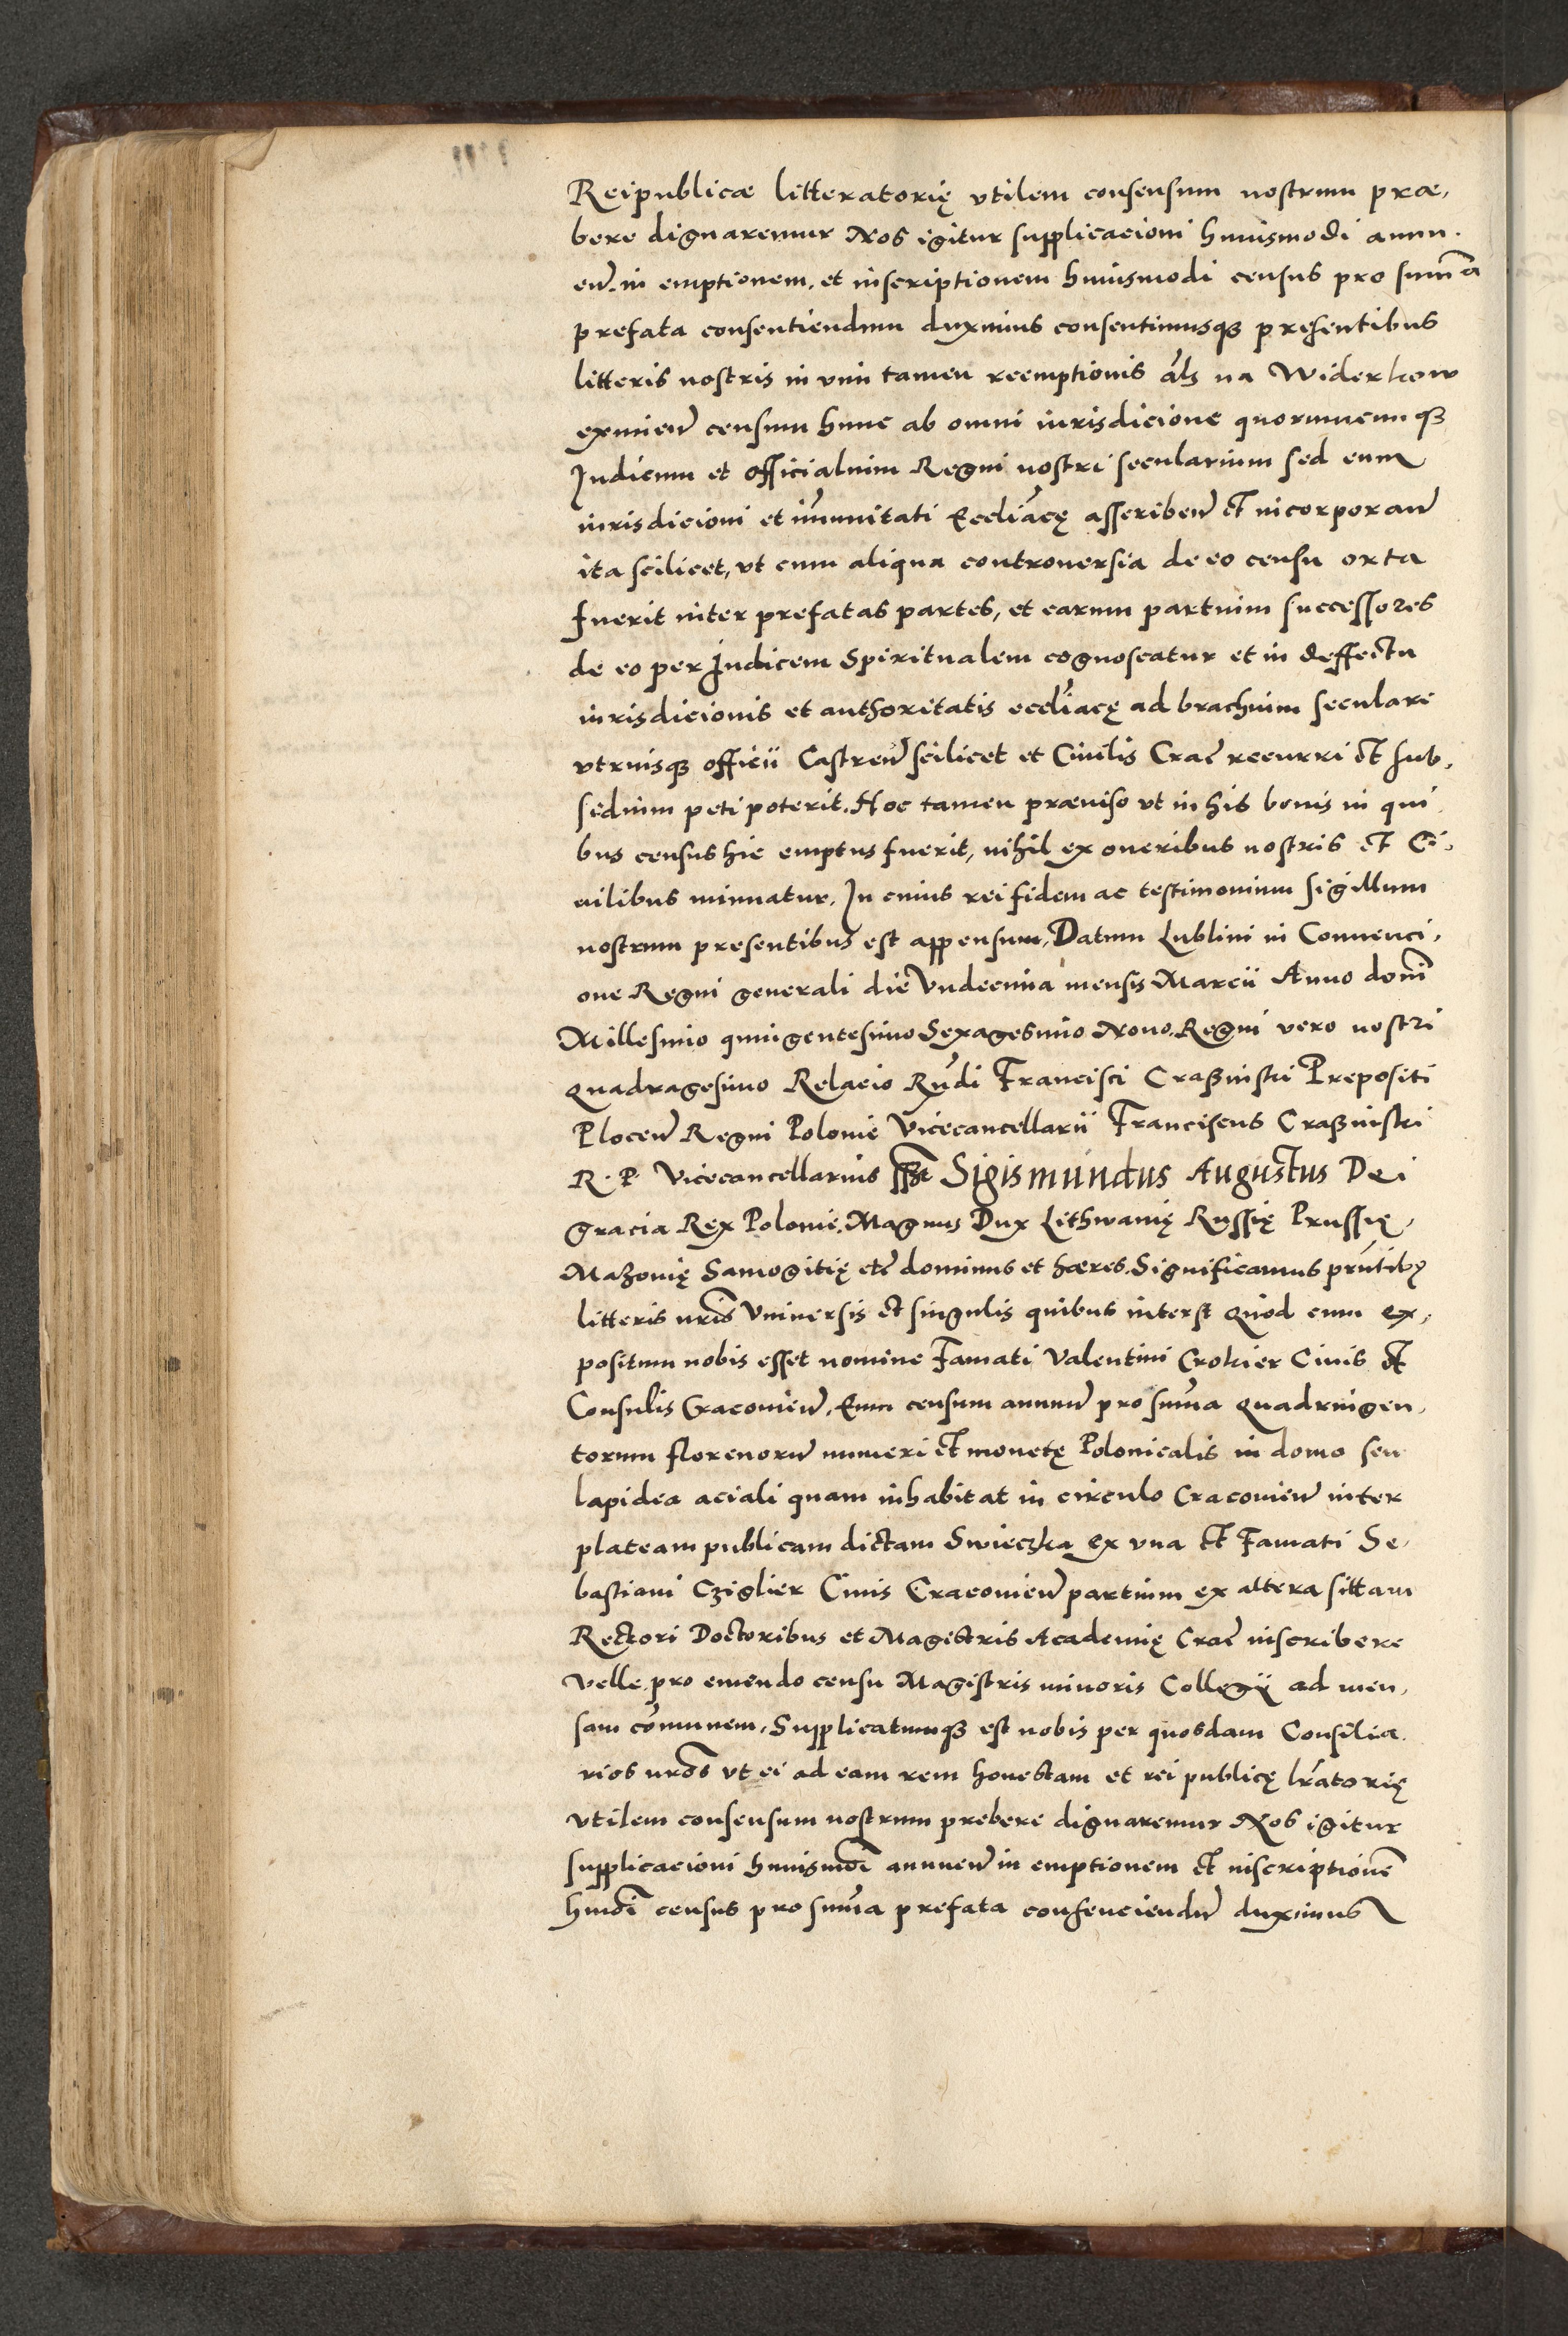 Reipublicæ litteratorię vtilem consensum nostrum præ,
bere dignaremur Nos igitur supplicacioni huiusmodi annu.
eñ. in emptionem, et inscriptionem huiusmodi census pro sum̃a
prefata consentiendum duximus consentimusqȝ pręsentibus
litteris nostris in vim tamen reemptionis als na Widerkow
eximieñ censum hunc ab omni iurisdicione quorumcumqȝ
Judicum et officialium Regni nostri secularium sed eum
iurisdicioni et im̃unitati Eccliãcę asscribeñ et incorporañ
ita scilicet, vt cum aliqua controuersia de eo censu orta
fuerit inter prefatas partes, et earum partium successores
de eo per Judicem Spiritualem cognoscatur et in deffectu
iurisdicionis et authoritatis eccliãcę ad brachium seculare
vtriusqȝ officii Castreñ scilicet et Ciuilis Crac̃ recurri et sub,
sedium peti poterit. Hoc tamen præuiso vt in his bonis in qui
bus census hic emptus fuerit, nihil ex oneribus nostris et Ci,
uilibus minuatur. In cuius rei fidem ac testimonium sigillum
nostrum presentibus est appensum, Datum Lublini in Conuenci,
one Regni generali die Vndecima mensis Marcii Anno domĩ
Millesimo quingentesimo Sexagesimo Nono. Regni vero nostri
quadragesimo Relacio Rñdi Francisci Craßinski Prepositi
Ploceñ Regni Polonie Vicecancellarii Franciscus Craßinski
R. P. Vicecancellarius sßt Sigismundus Augustus Dei
gracia Rex Polonie, Magnus Dux Lithwanię Russię Prussię,
Mazouię Samogitię etc̃ dominus et hæres. Significamus pr̃ntibꝰ
litteris nr̃is Vniuersis et singulis quibus interst quod cum ex,
positum nobis esset nomine Famati Valentini Crokier Ciuis et
Consulis Cracouieñ. Eum censum annuũ pro sum̃a quadringen,
torum florenorũ numeri et monetę Polonicalis in domo seu
lapidea aciali quam inhabitat in circulo Cracouieñ inter
plateam publicam dictam Swieczka ex vna et Famati Se,
bastiani Cziglier Ciuis Cracouieñ partium ex altera sittam
Rectori Doctoribus et Magistris Academię Crac̃ inscribere
velle pro emendo censu Magistris minoris Collegij ad men,
sam com̃unem, Supplicatumqȝ est nobis per quosdam Consilia
rios nr̃os vt ei ad eam rem honestam et rei publicę lr̃atorię
vtilem consensum nostrum prebere dignaremur Nos igitur
supplicacioni huiusmõi annueñ in emptionem et inscriptionẽ
huiõi census pro sum̃a prefata consenciendũ duximus